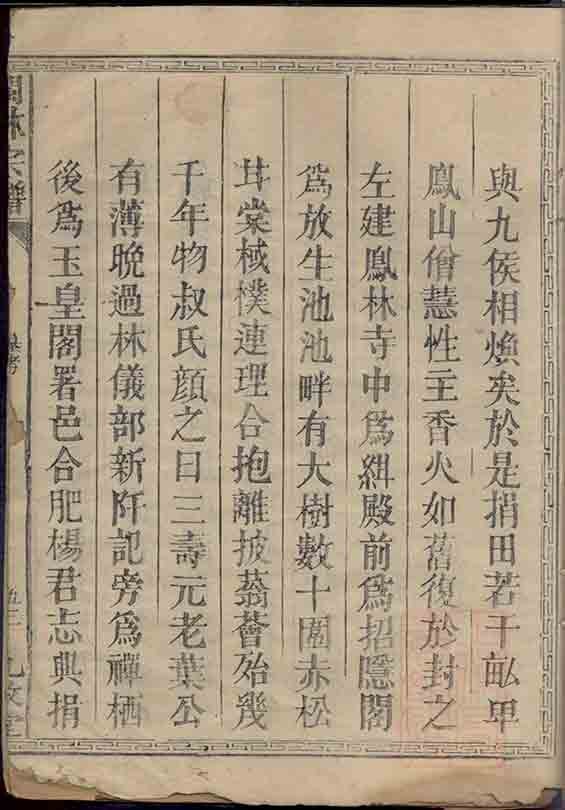 與九侯相煥矣於是捐田若干畝畀
鳳山僧慧性主香火如舊復於封之
左建鳳林寺中為紺殿前為招隱閣
為放生池池畔有大樹數十圍赤松
甘棠棫樸連理合抱離披蓊薈殆幾
千年物叔氏顏之曰三壽元老葉公
有薄晚過林儀部新阡記旁為禪栖
後為玉皇閣署邑合肥楊君志典捐
林宗譜